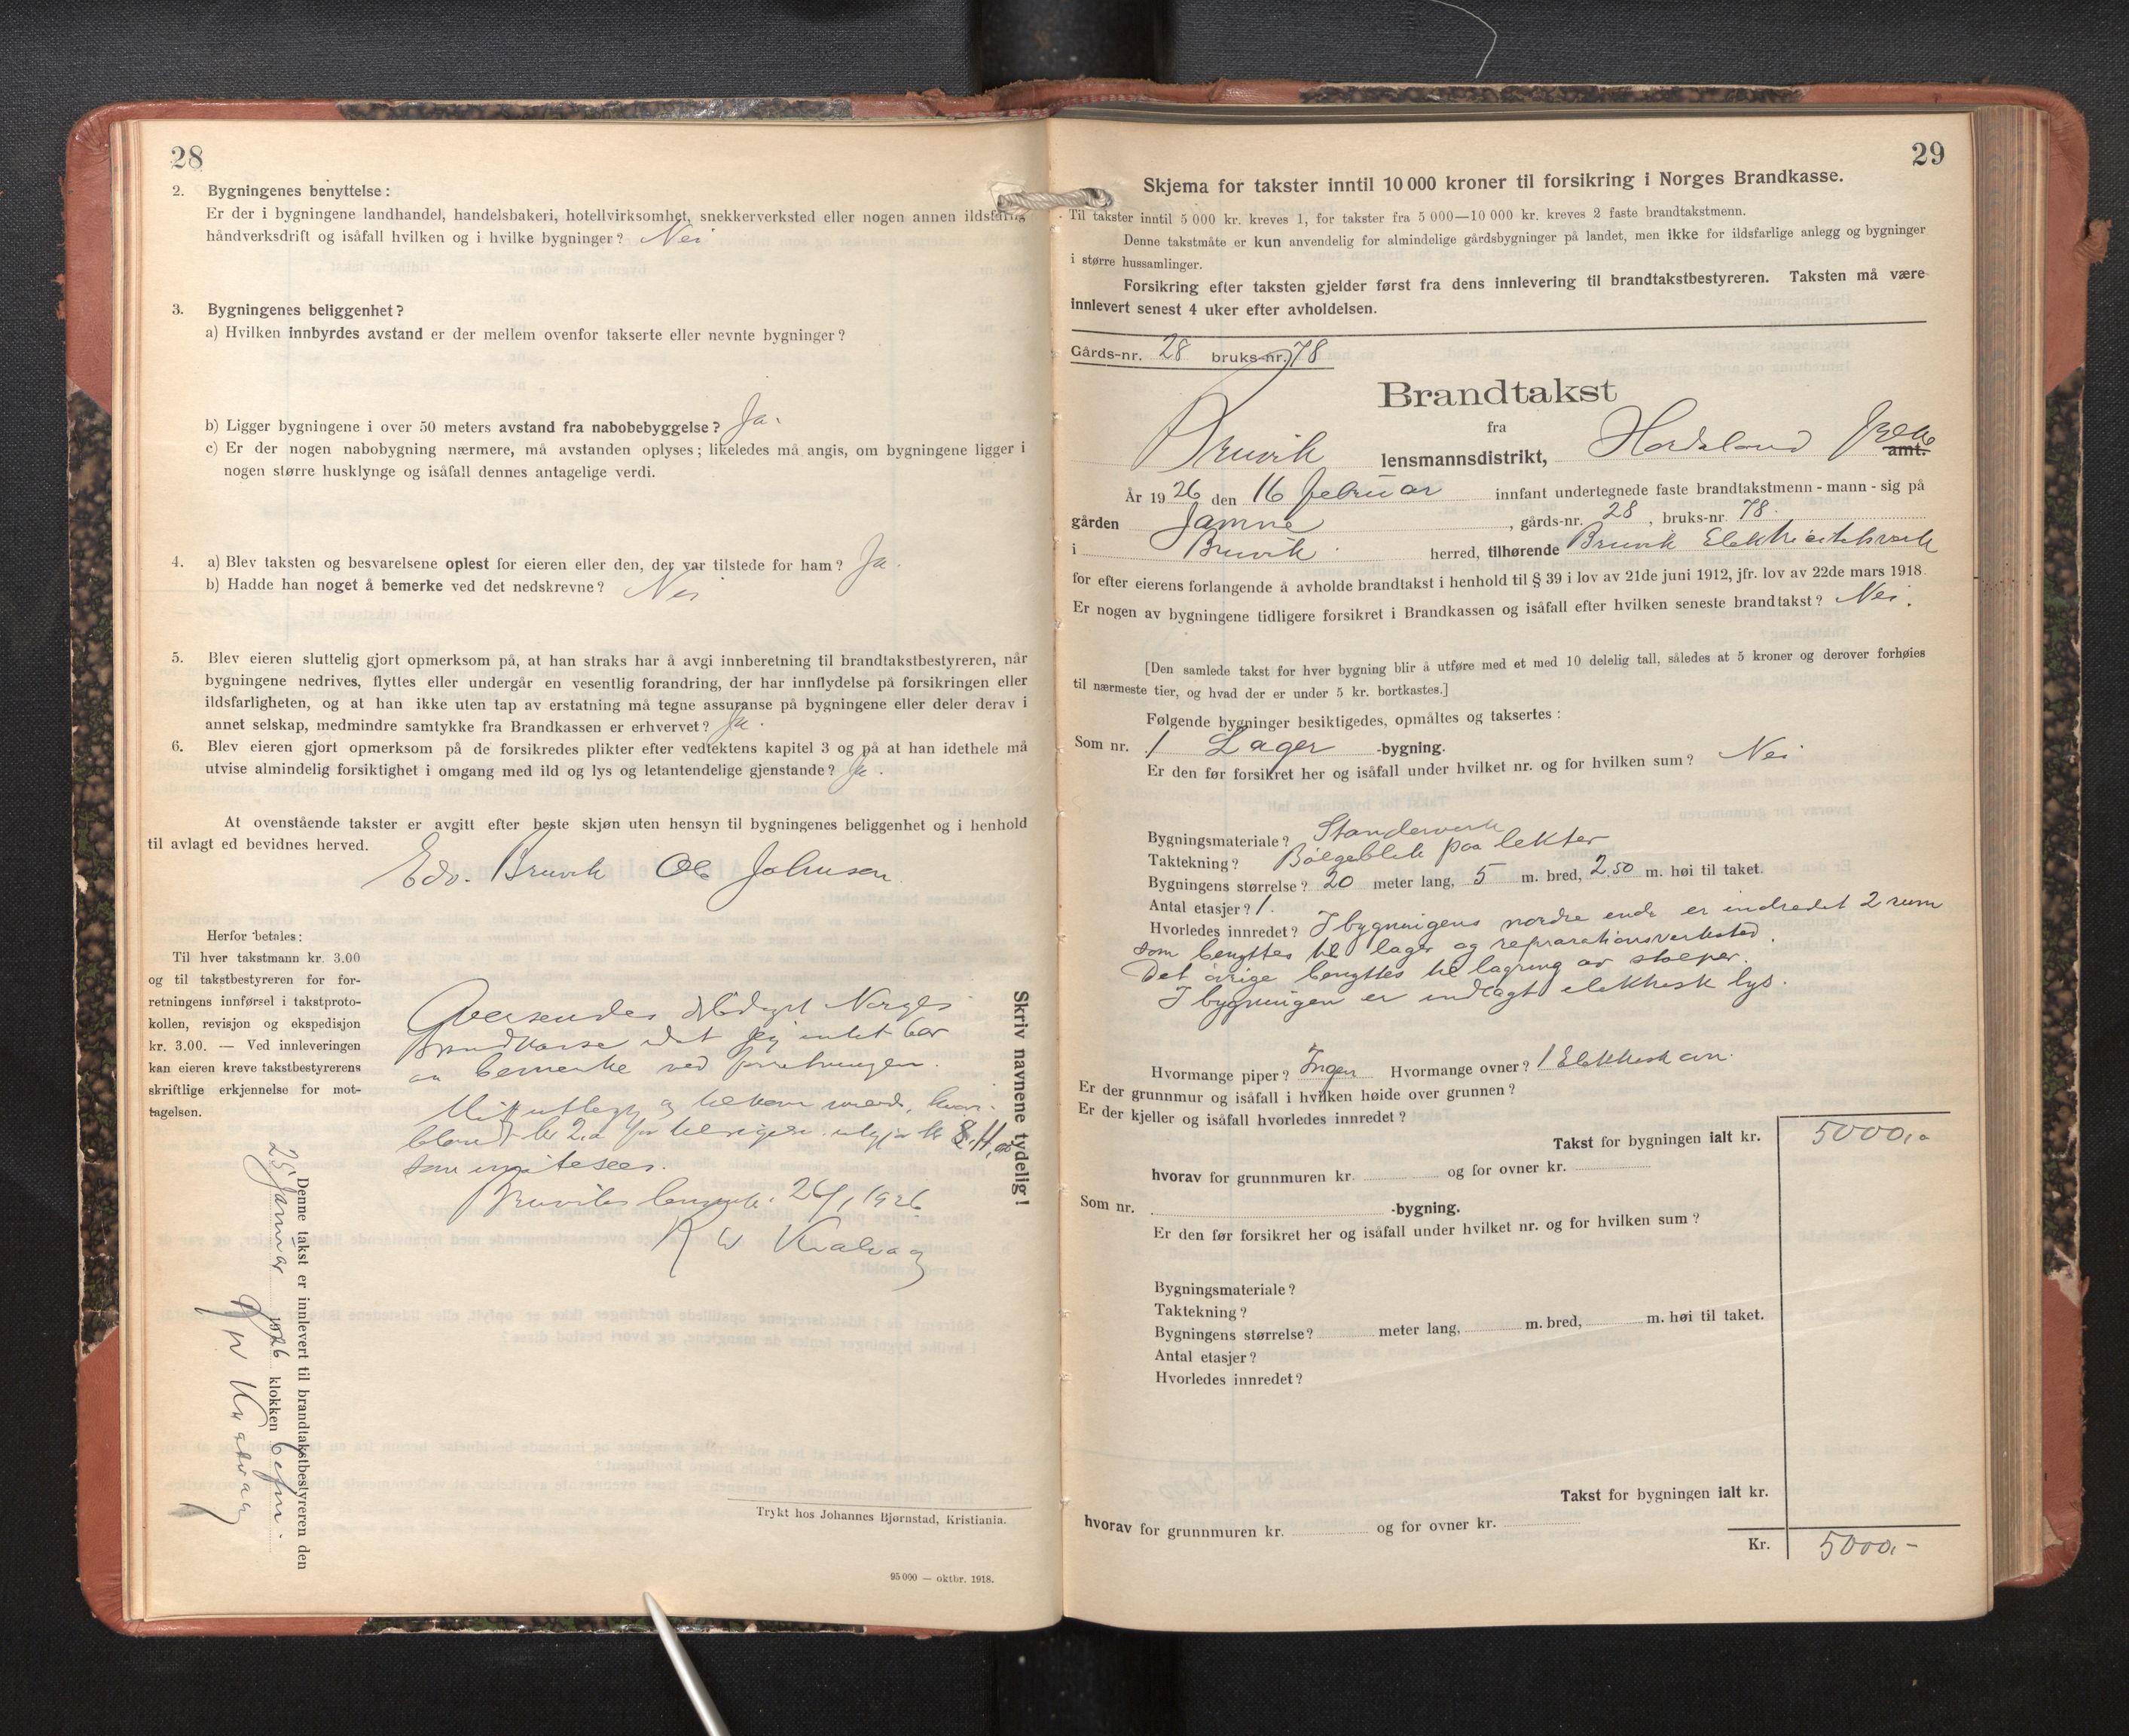 28
2. Bygningenes benyttelse:
Er der i bygningene landhandel, handelsbakeri, hotellvirksomhet, snekkerverksted eller nogen annen ildsfarlig
håndverksdrift og isåfall hvilken og i hvilke bygninger? Nei
3. Bygningenes beliggenhet?
a) Hvilken innbyrdes avstand er der mellem ovenfor takserte eller nevnte bygninger?
b) Ligger bygningene i over 50 meters avstand fra nabobebyggelse? Ja.
c) Er der nogen nabobygning nærmere, må avstanden oplyses; likeledes må angis, om bygningene ligger i
nogen større husklynge og isåfall dennes antagelige verdi.
4. a) Blev taksten og besvarelsene oplest for eieren eller den, der var tilstede for ham? Ja.
b) Hadde han noget å bemerke ved det nedskrevne? Nei
5. Blev eieren sluttelig gjort opmerksom på, at han straks har å avgi innberetning til brandtakstbestyreren, når
bygningene nedrives, flyttes eller undergår en vesentlig forandring, der har innflydelse på forsikringen eller
ildsfarligheten, og at han ikke uten tap av erstatning må tegne assuranse på bygningene eller deler derav i
annet selskap, medmindre samtykke fra Brandkassen er erhvervet? Ja.
6. Blev eieren gjort opmerksom på de forsikredes plikter efter vedtektens kapitel 3 og på at han idethele må
utvise almindelig forsiktighet i omgang med ild og lys og letantendelige gjenstande? Ja.
At ovenstående takster er avgitt efter beste skjøn uten hensyn til bygningenes beliggenhet og i henhold
til avlagt ed bevidnes herved.
Edv. Bruvik Ole Johnsen.
Herfor betales:
Til hver takstmann kr. 3.00
og til takstbestyreren for for-
retningens innførsel i takstproto-
kollen, revisjon og ekspedisjon
kr. 3.00. — Ved innleveringen
kan eieren kreve takstbestyrerens
skriftlige erkjennelse for mot-
tagelsen.
Oversendes Norges
Brandkasse idet jeg intet har
aa bemerke ved forretningen.
som
26/1 1926
Kvalvaag
Skriv navnene tydelig!
Denne takst er innlevert til brandtakstbestyreren den
25 januar 1926 klokken 6 efm.
Kvalvaag
Trykt hos Johannes Bjørnstad, Kristiania.
95 000 — oktbr. 1918.
29
Skjema for takster inntil 10 000 kroner til forsikring i Norges Brandkasse.
Til takster inntil 5 000 kr. kreves 1, for takster fra 5 000—10 000 kr. kreves 2 faste brandtakstmenn.
Denne takstmåte er kun anvendelig for almindelige gårdsbygninger på landet, men ikke for ildsfarlige anlegg og bygninger
i større hussamlinger.
Forsikring efter taksten gjelder først fra dens innlevering til brandtakstbestyreren. Taksten må være
innlevert senest 4 uker efter avholdelsen.
Gårds-nr. 28 bruks-nr. 78
Brandtakst
fra
Bruvik lensmannsdistrikt, Hordaland fylke amt.
År 1926 den 16 februar innfant undertegnede faste brandtakstmenn - mann - sig på
gården Jamne, gårds-nr. 28, bruks-nr. 78.
i Bruvik herred, tilhørende Bruvik Elektricitetsverk
for efter eierens forlangende å avholde brandtakst i henhold til § 39 i lov av 21de juni 1912, jfr. lov av 22de mars 1918.
Er nogen av bygningene tidligere forsikret i Brandkassen og isåfall efter hvilken seneste brandtakst? Nei.
[Den samlede takst for hver bygning blir å utføre med et med 10 delelig tall, således at 5 kroner og derover forhøies
til nærmeste tier, og hvad der er under 5 kr. bortkastes.]
Følgende bygninger besiktigedes, opmåltes og taksertes:
Som nr. 1 Lager -bygning.
Er den før forsikret her og isåfall under hvilket nr. og for hvilken sum? Nei
Bygningsmateriale? Standerverk
Taktekning? Bølgeblik paa lekter
Bygningens størrelse? 20 meter lang, 5 m. bred, 2.50 m. høi til taket.
Antal etasjer? 1.
Hvorledes innredet? I bygningens nordre ende er indredet 2 rum
som benyttes til lager og reparationsverksted.
Det øvrige benyttes til lagring av stolper.
I bygningen er indlagt elektrisk lys.
Hvormange piper? Ingen Hvormange ovner? 1 Elektrisk ovn.
Er der grunnmur og isåfall i hvilken høide over grunnen?
Er der kjeller og isåfall hvorledes innredet?
Takst for bygningen ialt kr. 5000,-
hvorav for grunnmuren kr. og for ovner kr.
Som nr. -bygning.
Er den før forsikret her og isåfall under hvilket nr. og for hvilken sum?
Bygningsmateriale?
Taktekning?
Bygningens størrelse? meter lang, m. bred, m. høi til taket.
Antal etasjer?
Hvorledes innredet?
Takst for bygningen ialt kr.
hvorav for grunnmuren kr. og for ovner kr.
Kr. 5000,-